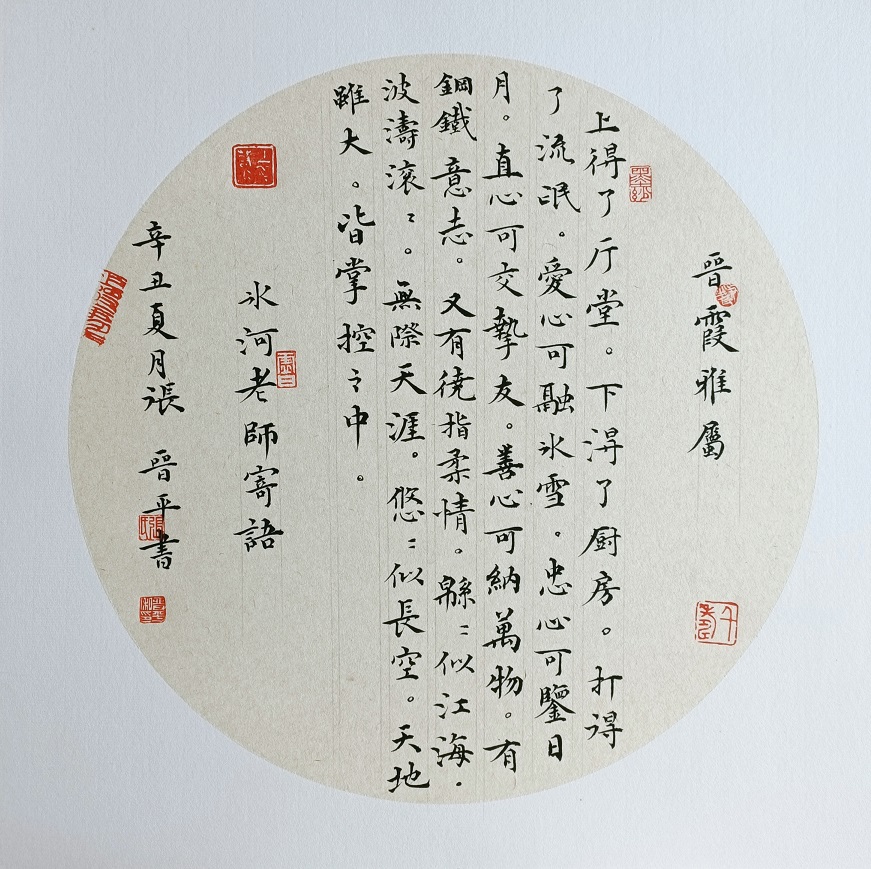 晉霞雅屬
上得了厅堂。下得了厨房。打得
了流氓。愛心可融氷雪。忠心可鑒日
月。直心可交摯友。善心可納萬物。有
鋼鐵意志。又有繞指柔情。緜〻似江海.
波濤滚〻。無際天涯。悠〻似長空。天地
雖大。皆掌控之中。
氷河老師寄語
辛丑夏月張晉平書